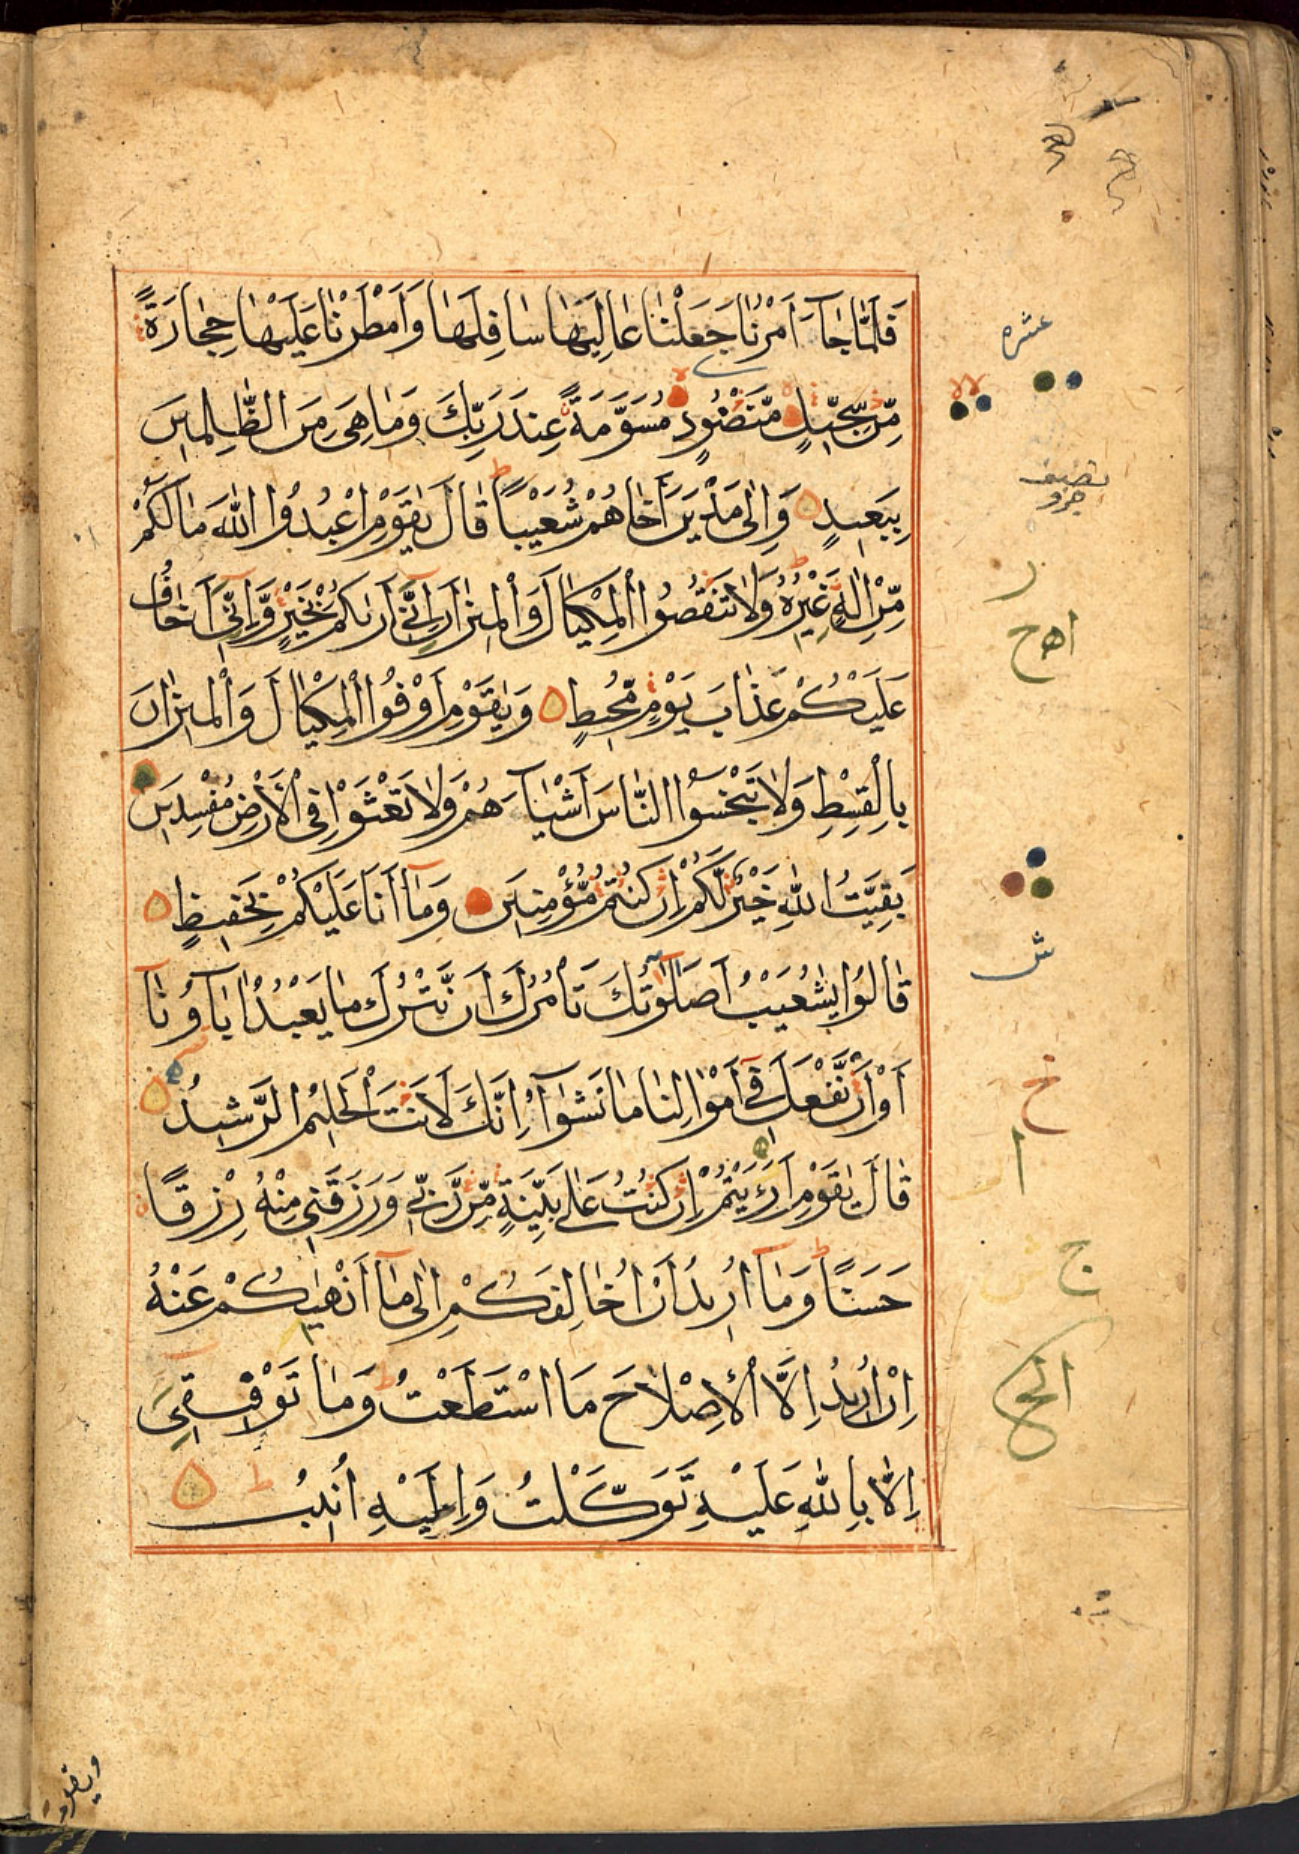 فَلَمَّا جَآءَ اَمْرُنَا جَعَلْنَا عَالِيَهَا سَافِلَهَا وَاَمْطَرْنَا عَلَيْهَا حِجَارَةً
مِّنْ سِجِّيْلٍ مَّنْضُوْدٍ مُسَوَّمَةً عِنْدَ رَبِّكَ وَمَا هِىَ مِنَ الظّٰلِمِيْنَ
بِبَعِيْدٍ وَاِلٰى مَدْيَنَ اَخَاهُمْ شُعَيْبًا ط قَالَ يٰقَوْمِ اعْبُدُوا اللّٰهَ مَا لَكُمْ
مِّنْ اِلٰهٍ غَيْرُهٗ ط وَلَا تَنْقُصُوا الْمِكْيَالَ وَالْمِيْزَانَ اِنِّىْٓ اَرٰىكُمْ بِخَيْرٍ وَّاِنِّىْٓ اَخَافُ
عَلَيْكُمْ عَذَابَ يَوْمٍ مُّحِيْطٍ وَيٰقَوْمِ اَوْفُوا الْمِكْيَالَ وَالْمِيْزَانَ
بِالْقِسْطِ وَلَا تَبْخَسُوا النَّاسَ اَشْيَآءَهُمْ وَلَا تَعْثَوْا فِى الْاَرْضِ مُفْسِدِيْنَ
بَقِيَّتُ اللّٰهِ خَيْرٌ لَّكُمْ اِنْ كُنْتُمْ مُّؤْمِنِيْنَ وَمَآ اَنَا عَلَيْكُمْ بِحَفِيْظٍ
قَالُوْا يٰشُعَيْبُ اَصَلٰوتُكَ تَاْمُرُكَ اَنْ نَّتْرُكَ مَا يَعْبُدُ اٰبَآؤُنَآ
اَوْ اَنْ نَّفْعَلَ فِىْٓ اَمْوَالِنَا مَا نَشٰٓؤُا اِنَّكَ لَاَنْتَ الْحَلِيْمُ الرَّشِيْدُ
قَالَ يٰقَوْمِ اَرَءَيْتُمْ اِنْ كُنْتُ عَلٰى بَيِّنَةٍ مِّنْ رَّبِّىْ وَرَزَقَنِىْ مِنْهُ رِزْقًا
حَسَنًا ط وَمَآ اُرِيْدُ اَنْ اُخَالِفَكُمْ اِلٰى مَآ اَنْهٰىكُمْ عَنْهُ
اِنْ اُرِيْدُ اِلَّا الْاِصْلَاحَ مَا اسْتَطَعْتُ ط وَمَا تَوْفِيْقِىْٓ
اِلَّا بِاللّٰهِ عَلَيْهِ تَوَكَّلْتُ وَاِلَيْهِ اُنِيْبُ ط
عشره
نصف
جزو
ر
اهح
ش
خ
ا
ج
الحج
ويقوم